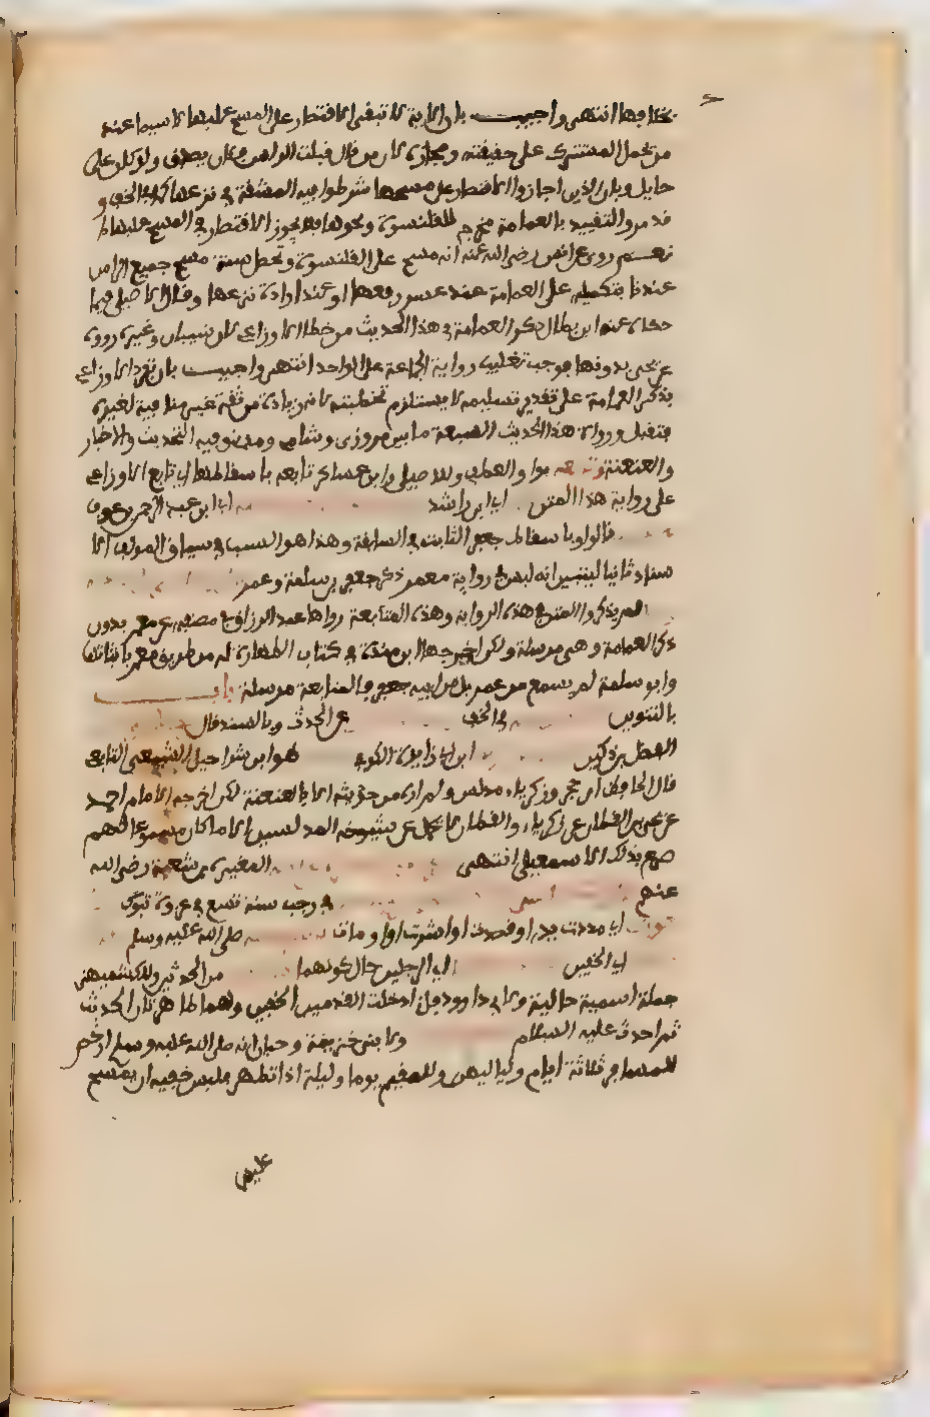 بخلافها انتهى واجيب بان الاية لا تنفي الاقتصار على المسح عليها لا سيما عند
من يحمل المشترك على حقيقته ومجازه لان من قال قبلت راس فلان يصدق ولو كان على
حايل وبان الذين اجازوا الاقتصار على مسحها شرطوا فيه المشقة في نزعها كما في الخف و
قد مر والتقييد بالعمامة مخرج للقلنسوة ونحوها فلا يجوز الاقتصار في المسح عليها
نعم روي عن انس رضي الله عنه انه مسح على القلنسوة وتحصل سنة مسح جميع الراس
عندنا بتكميله على العمامة عند عسر رفعها او عند ارادة نزعها وقال الاصيلي فيما
حكاه عنه ابن بطال ذكر العمامة في هذا الحديث من خطا الاوزاعي لان شيبان وغيره رووه
عن يحيى بدونها فوجب تغليب رواية الجماعة على الواحد انتهى واجيب بان تفرد الاوزاعي
بذكر العمامة على تقدير تسليمه لا يستلزم تخطئته لانه زيادة من ثقة غير منافية لغيره
فتقبل ورواة هذا الحديث السبعة ما بين مروزي وشامي ومدني وفيه التحديث والاخبار
والعنعنة وتابعه بواو العطف وللاصيلي وابن عساكر تابعه باسقاطها اي تابع الاوزاعي
على رواية هذا المتن اي ابن راشد اي ابن عبد الرحمن بن عوف
قالوا وباسقاط جعفر الثابت في السابقة وهذا هو السبب في سياق المولف الا
سناد ثانيا ليبين انه ليس في رواية معمر ذكر جعفر بين سلمة وعمر
لم يذكروا المتن في هذه الرواية وهذه المتابعة رواها عبد الرزاق في مصنفه عن معمر بدون
ذكر العمامة وهي مرسلة ولكن اخرجها ابن منده في كتاب الطهارة له من طريق معمر باثباتها
وابو سلمة لم يسمع من عمر بل من ابيه جعفر فالمتابعة مرسلة باب
بالتنوين في الخف من الحدث وبالسند قال
الفضل بن دكين ابن ابي زايدة الكوفي هو ابن شراحيل الشعبي التابعي
قال الحافظ ابن حجر وزكرياء مدلس ولم اره من حديثه الا بالعنعنة لكن اخرجه الامام احمد
عن يحيى القطان عن زكرياء والقطان لا يحمل عن شيوخه المدلسين الا ما كان مسموعا لهم
صرح بذلك الاسمعيلي انتهى المغيرة بن شعبة رضي الله
عنهم في رجب سنة تسع في غزوة تبوك
اي مددت يدي او قصدت او اشرت او اومات صلى الله عليه وسلم
اي الخفين اي الرجلين حال كونهما من الحدثين وللكشميهني
جملة اسمية حالية ولابي داوود فاني ادخلت القدمين الخفين وهما طاهرتان الحدث
ثم احدث عليه السلام ولابني خزيمة وحبان انه صلى الله عليه وسلم ارخص
للمسافر ثلاثة ايام ولياليهن وللمقيم يوما وليلة اذا تطهر فلبس خفيه ان يمسح
عليهما